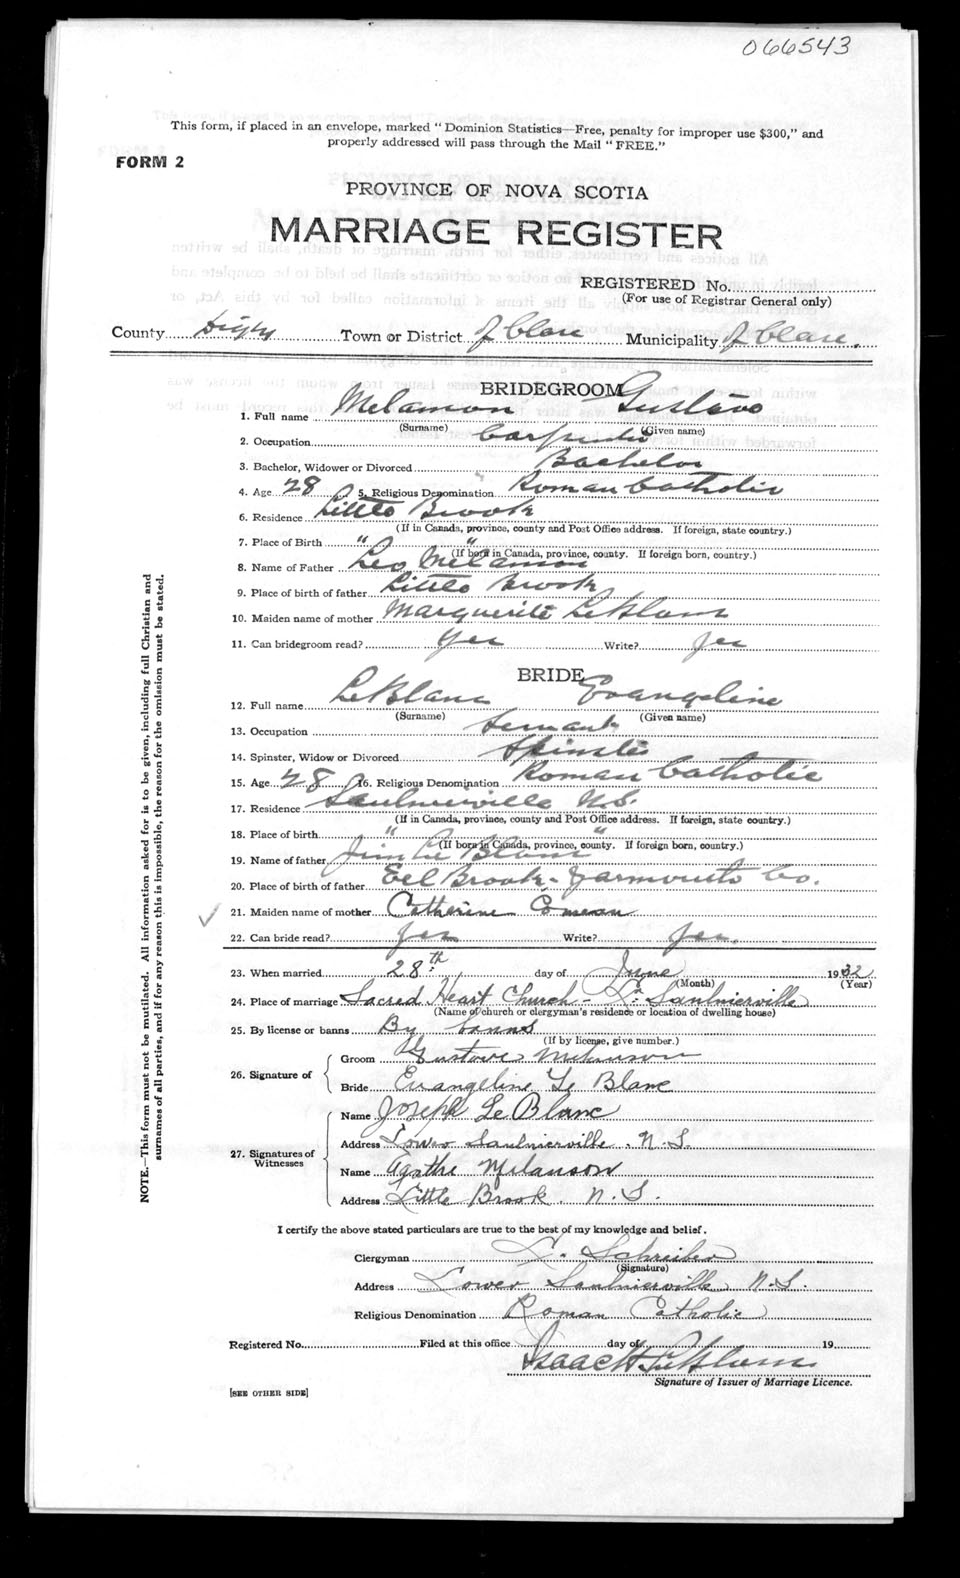 066543
This form, if placed in an envelope, marked “ Dominion Statistics—Free, penalty for improper use $300,” and
properly addressed will pass through the Mail “ FREE.”
FORM 2
PROVINCE OF NOVA SCOTIA
MARRIAGE REGISTER
REGISTERED No.
(For use of Registrar General only)
County Digby Town or District of Clare Municipality of Clare.
BRIDEGROOM
1. Full name Melanson Gustave
(Surname) (Given name)
2. Occupation Carpenter
3. Bachelor, Widower or Divorced Bachelor
4. Age 28 5. Religious Denomination Roman Catholic
6. Residence Little Brook
(If in Canada, province, county and Post Office address. If foreign, state country.)
7. Place of Birth " "
(If born in Canada, province, county. If foreign born, country.)
8. Name of Father Leo Melanson
9. Place of birth of father Little Brook
10. Maiden name of mother Marguerite LeBlanc
11. Can bridegroom read? Yes Write? Yes
BRIDE
12. Full name LeBlanc Evangeline
(Surname) (Given name)
13. Occupation Servant
14. Spinster, Widow or Divorced Spinster
15. Age 28 16. Religious Denomination Roman Catholic
17. Residence Saulnierville N.S.
(If in Canada, province, county and Post Office address. If foreign, state country.)
18. Place of birth " "
(If born in Canada, province, county. If foreign born, country.)
19. Name of father Jim Le Blanc
20. Place of birth of father Eel Brook - Yarmouth Co.
21. Maiden name of mother Catherine Comeau
22. Can bride read? Yes Write? Yes.
23. When married 28th day of June 1932
(Month) (Year)
24. Place of marriage Sacred Heart Church - Lr. Saulnierville
(Name of church or clergyman's residence or location of dwelling house)
25. By license or banns By banns
(If by license, give number.)
26. Signature of
Groom Gustave Melanson
Bride Evangeline Le Blanc
27. Signatures of Witnesses
Name Joseph Le Blanc
Address Lower Saulnierville, N.S.
Name Agathe Melanson
Address Little Brook, N.S.
I certify the above stated particulars are true to the best of my knowledge and belief.
Clergyman L. Schreiber
(Signature)
Address Lower Saulnierville N.S.
Religious Denomination Roman Catholic
Registered No. Filed at this office day of 19
Isaac H LeBlanc
Signature of Issuer of Marriage Licence.
[SEE OTHER SIDE]
NOTE.—This form must not be mutilated. All information asked for is to be given, including full Christian and
surnames of all parties, and if for any reason this is impossible, the reason for the omission must be stated.